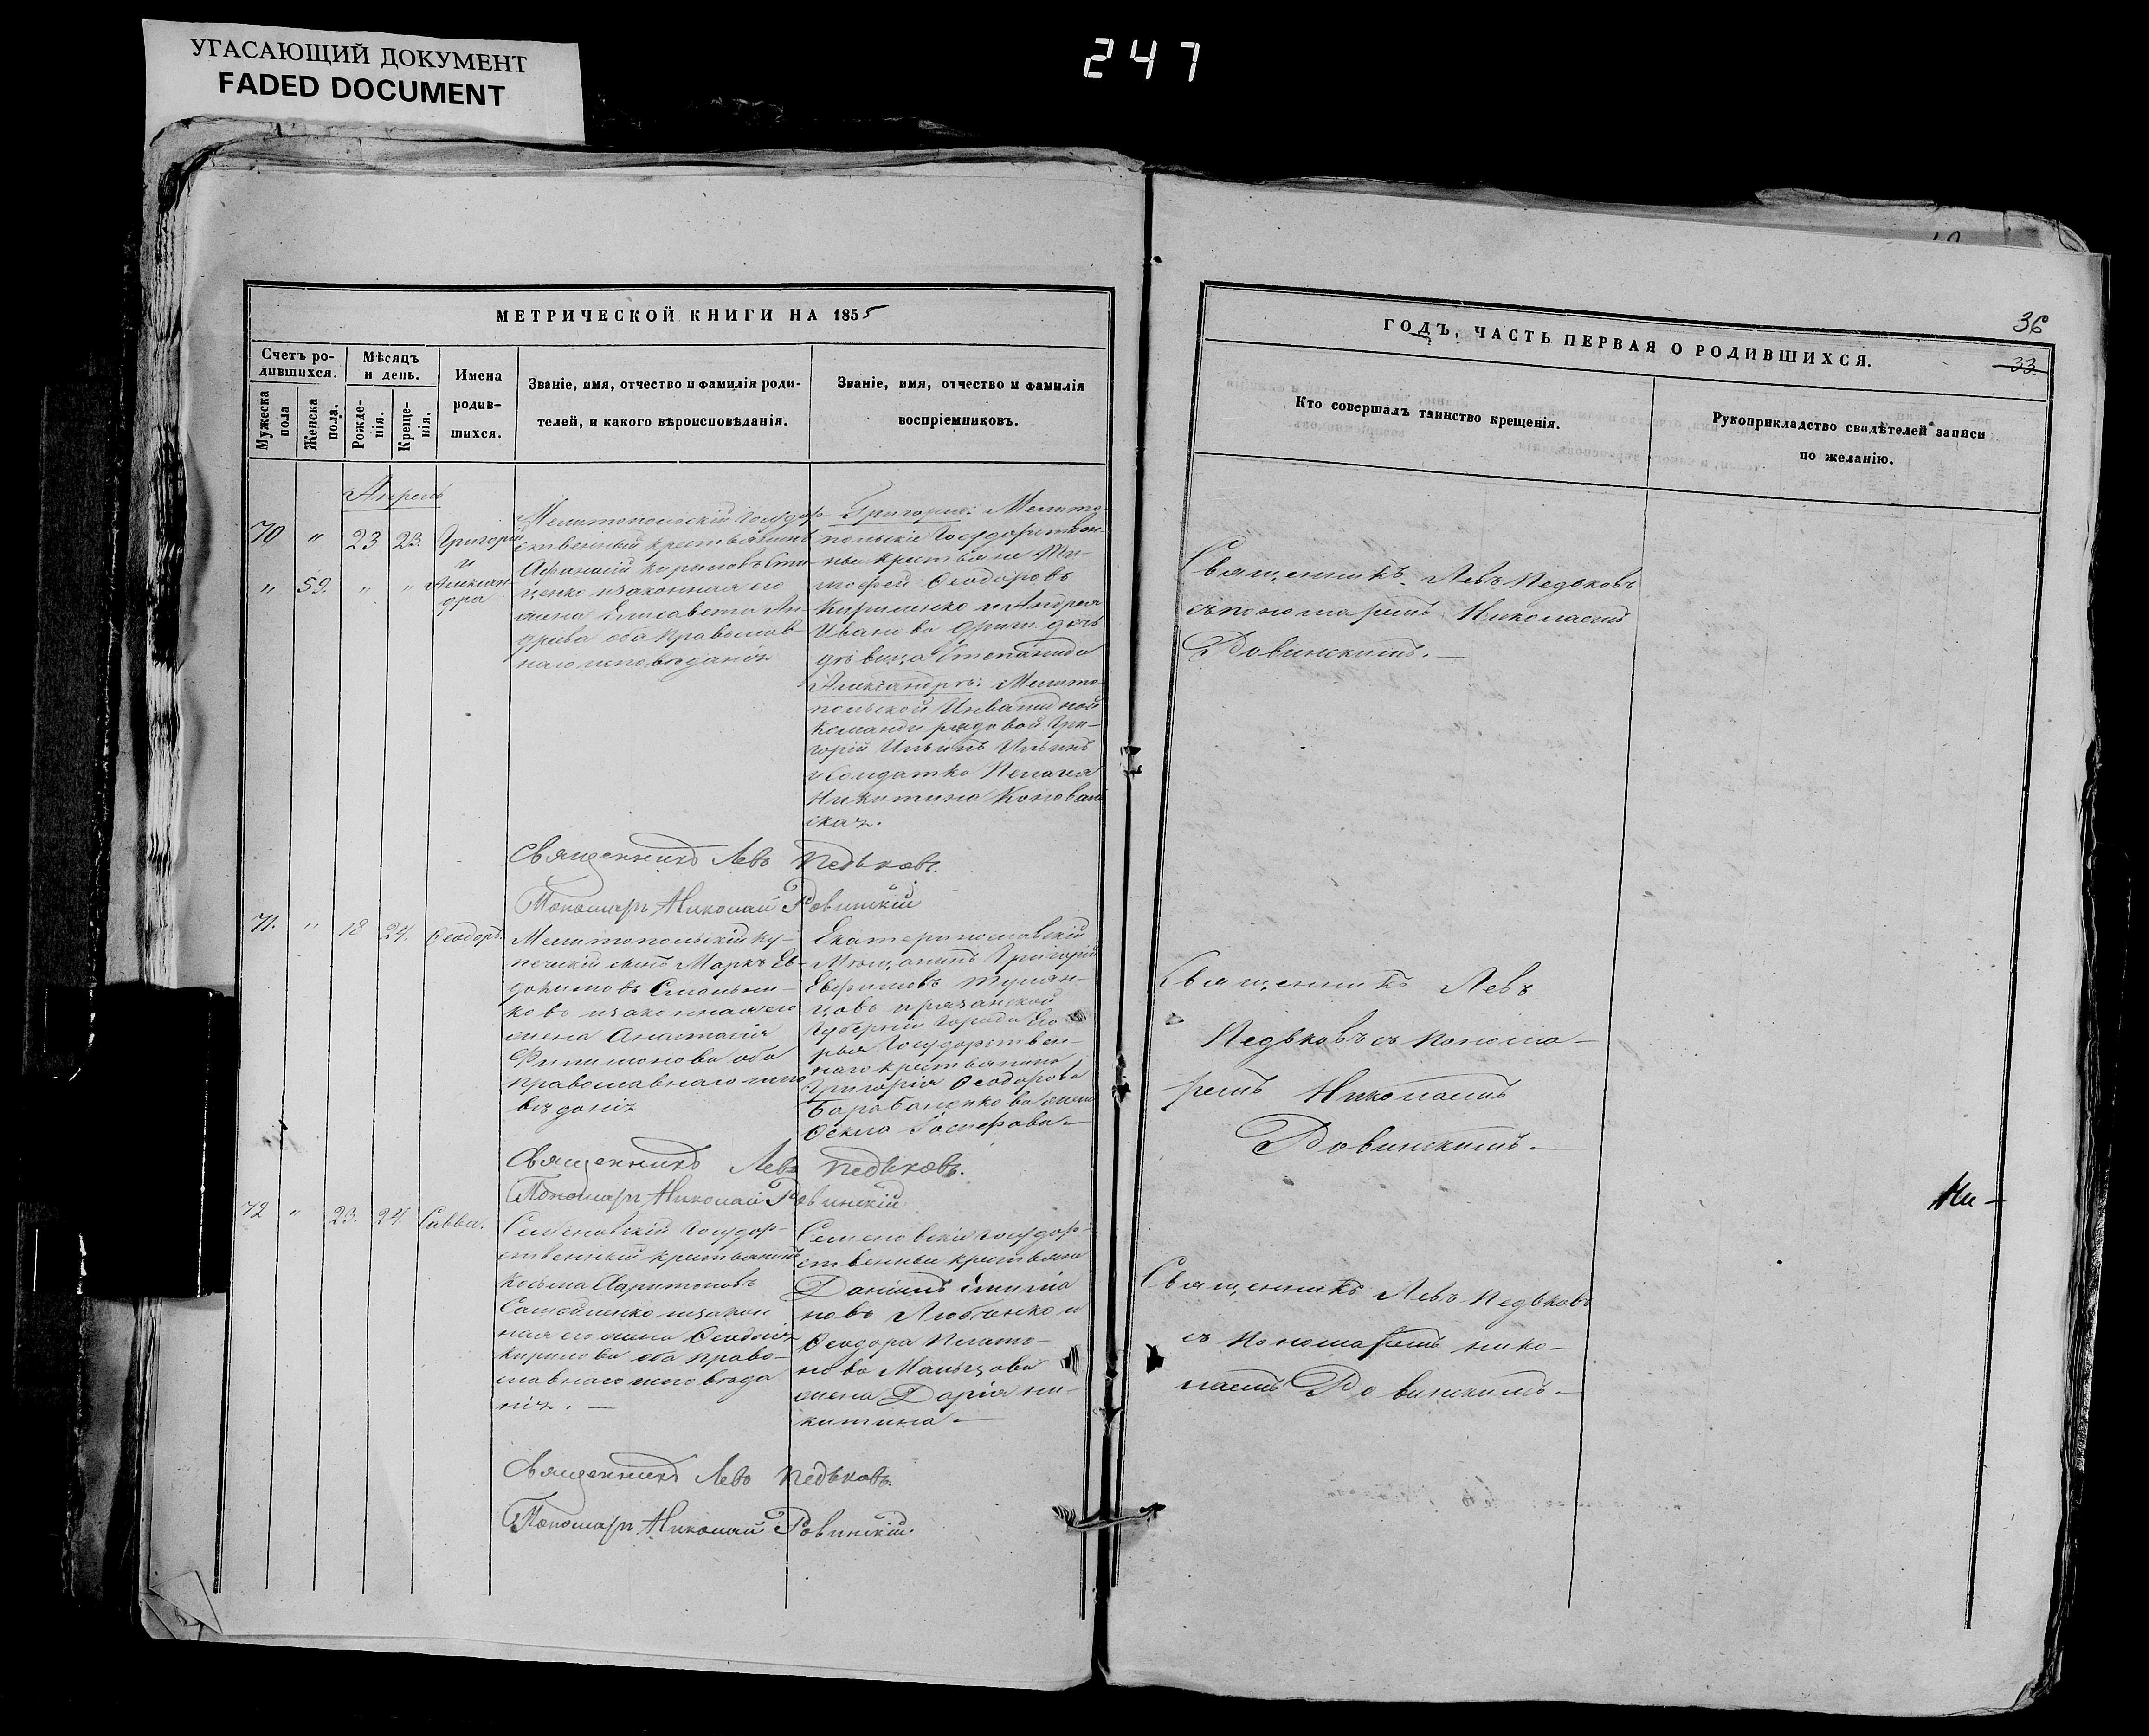 УГАСАЮЩИЙ ДОКУМЕНТ
FADED DOCUMENT
247
МЕТРИЧЕСКОЙ КНИГИ НА 1855
Счетъ ро-
дившихся.
Мѣсяцъ
и день.
Мужеска
пола
Женска
пола.
Рожде-
нія.
Креще-
нія.
Имена
родив-
шихся.
Званіе, имя, отчество и фамилія роди-
телей, и какого вѣроисповѣданія.
Званіе, имя, отчество и фамилія
воспріемниковъ.
Апрель
70 " 23 23. Григорій
и
" 59. " " Алексан-
дра
Мелитопольскій Государ-
ственный крестьянинъ
Афанасій Кириловъ
и законная его
жена Елисавета Ан-
дреева оба православ-
наго исповѣданія
Григорія: Мелито-
польскіе Государствен-
ные крестьяне Ти-
мофей Ѳеодоровъ
Кириленко и Андрея
Иванова дочь
дѣвица Степанида
Александры: Мелито-
польской Инвалидной
команды рядовой Гри-
горій Ильинъ Ильинъ
и солдатка Пелагея
Никитина
ская.
Священникъ Левъ Педьковъ.
Пономарь Николай Ровинскій
71. " 18 24. Ѳеодоръ.
Мелитопольскій ку-
печескій сынъ Маркъ Ев-
докимовъ
ковъ и законная его
жена Анастасія
Филимонова оба
православнаго испо
вѣданія
Екатеринославскій
Мѣщанинъ Григорій
Евфимовъ
цовъ и Рязанской
Губерніи города Его
рья Государствен-
наго крестьянина
Григорія Ѳеодорова
Барабанщикова жена
Ѳекла
Священникъ Левъ Педьковъ.
Пономарь Николай Ровинскій
72 " 23. 24. Савва.
Семеновскій Государ-
ственный крестьянинъ
Косьма Харитоновъ
Самойленко и закон
ная его жена Ѳеодосія
Кирилова оба право-
славнаго исповѣда
нія. —
Семеновскіе Государ-
ственные крестьяне
Даніилъ Емилиа
новъ Любченко и
Ѳеодора Плато-
нова Мальцова
жена Дарія Ни-
китина —
Священникъ Левъ Педьковъ.
Пономарь Николай Ровинскій.
36
33.
ГОДЪ, ЧАСТЬ ПЕРВАЯ О РОДИВШИХСЯ.
Кто совершалъ таинство крещенія.
Рукоприкладство свидѣтелей записи
по желанію.
Священникъ Левъ Педьковъ
съ пономаремъ Николаемъ
Ровинскимъ. —
Священникъ Левъ
Педьковъ съ Понома-
ремъ Николаемъ
Ровинскимъ —
Ни-
Священникъ Левъ Педьковъ
съ Пономаремъ Нико-
лаемъ Ровинскимъ —